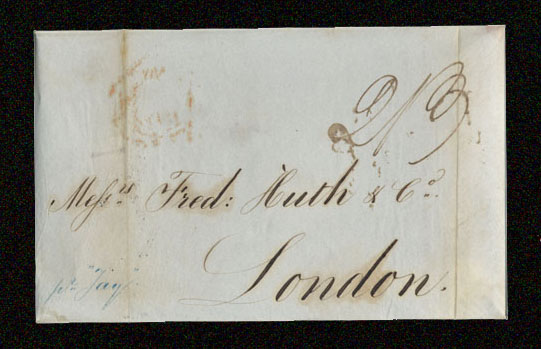 2/3
Messrs Fred: Huth & Co.
London.
pr. "Jay"